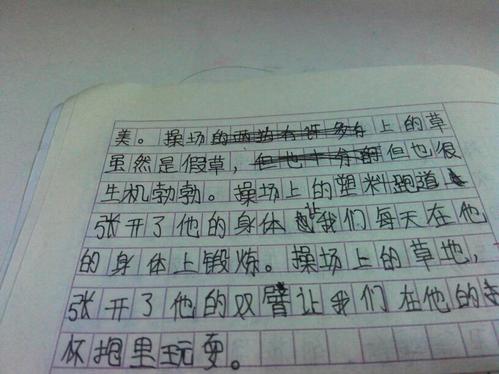 美。操场上的草
虽然是假草，但也很
生机勃勃。操场上的塑料跑道
张开了他的身体让我们每天在他
的身体上锻炼。操场上的草地，
张开了他的双臂让我们在他的
怀抱里玩耍。